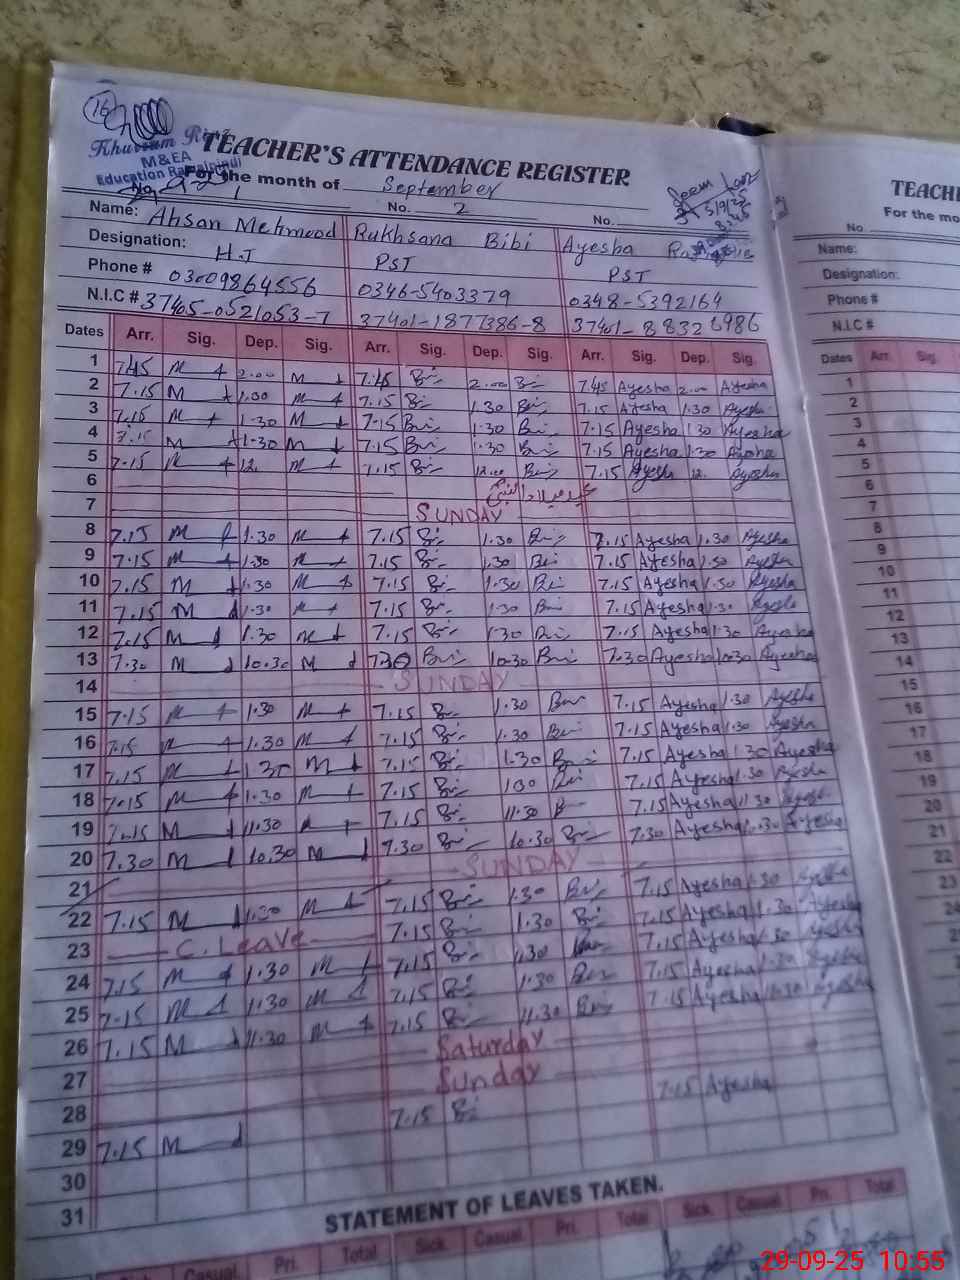 16
Khurram Riaz
M&EA
Education Rawalpindi
TEACHER'S ATTENDANCE REGISTER
For the month of September
No. 2 No.
5/9/25
Name: Ahsan Mehmood Rukhsana Bibi Ayesha
Designation: H.T PST PST
Phone # 03009864556 0346-5403379 0348-5392164
N.I.C # 37405-0521053-7 37401-1877386-8 37401-88326986
Dates Arr. Sig. Dep. Sig. Arr. Sig. Dep. Sig. Arr. Sig. Dep. Sig.
1 7.45 M 2.00 M 7.45 Bi 2.00 Bi 7.45 Ayesha 2.00 Ayesha
2 7.15 M 1.30 M 7.15 Bi 1.30 Bi 7.15 Ayesha 1.30 Ayesha
3 7.15 M 1.30 M 7.15 Bi 1.30 Bi 7.15 Ayesha 1.30 Ayesha
4 7.15 M 1.30 M 7.15 Bi 1.30 Bi 7.15 Ayesha 1.30 Ayesha
5 7.15 M 12. M 7.15 Bi 12.00 Bi 7.15 Ayesha 12. Ayesha
6 عید میلاد النبی
7 SUNDAY
8 7.15 M 1.30 M 7.15 Bi 1.30 Bi 7.15 Ayesha 1.30 Ayesha
9 7.15 M 1.30 M 7.15 Bi 1.30 Bi 7.15 Ayesha 1.30 Ayesha
10 7.15 M 1.30 M 7.15 Bi 1.30 Bi 7.15 Ayesha 1.30 Ayesha
11 7.15 M 1.30 M 7.15 Bi 1.30 Bi 7.15 Ayesha 1.30 Ayesha
12 7.15 M 1.30 M 7.15 Bi 1.30 Bi 7.15 Ayesha 1.30 Ayesha
13 7.30 M 10.30 M 7.30 Bi 10.30 Bi 7.30 Ayesha 10.30 Ayesha
14 SUNDAY
15 7.15 M 1.30 M 7.15 Bi 1.30 Bi 7.15 Ayesha 1.30 Ayesha
16 7.15 M 1.30 M 7.15 Bi 1.30 Bi 7.15 Ayesha 1.30 Ayesha
17 7.15 M 1.30 M 7.15 Bi 1.30 Bi 7.15 Ayesha 1.30 Ayesha
18 7.15 M 1.30 M 7.15 Bi 1.30 Bi 7.15 Ayesha 1.30 Ayesha
19 7.15 M 11.30 M 7.15 Bi 11.30 B 7.15 Ayesha 11.30 Ayesha
20 7.30 M 10.30 M 7.30 Bi 10.30 Bi 7.30 Ayesha 10.30 Ayesha
21 SUNDAY
22 7.15 M 1.30 M 7.15 Bi 1.30 Bi 7.15 Ayesha 1.30 Ayesha
23 C. Leave 7.15 Bi 1.30 Bi 7.15 Ayesha 1.30 Ayesha
24 7.15 M 1.30 M 7.15 Bi 1.30 7.15 Ayesha 1.30 Ayesha
25 7.15 M 1.30 M 7.15 Bi 1.30 Bi 7.15 Ayesha 1.30 Ayesha
26 7.15 M 11.30 M 7.15 Bi 11.30 Bi 7.15 Ayesha 11.30 Ayesha
27 Saturday
28 Sunday
29 7.15 M 7.15 Bi 7.15 Ayesha
30
31
STATEMENT OF LEAVES TAKEN.
Sick Casual Pri. Total Sick Casual Pri. Total Sick Casual Pri. Total
TEACHE
For the mo
No.
Name:
Designation:
Phone #
N.I.C #
Dates Arr. Sig.
1
2
3
4
5
6
7
8
9
10
11
12
13
14
15
16
17
18
19
20
21
22
23
29-09-25 10:55